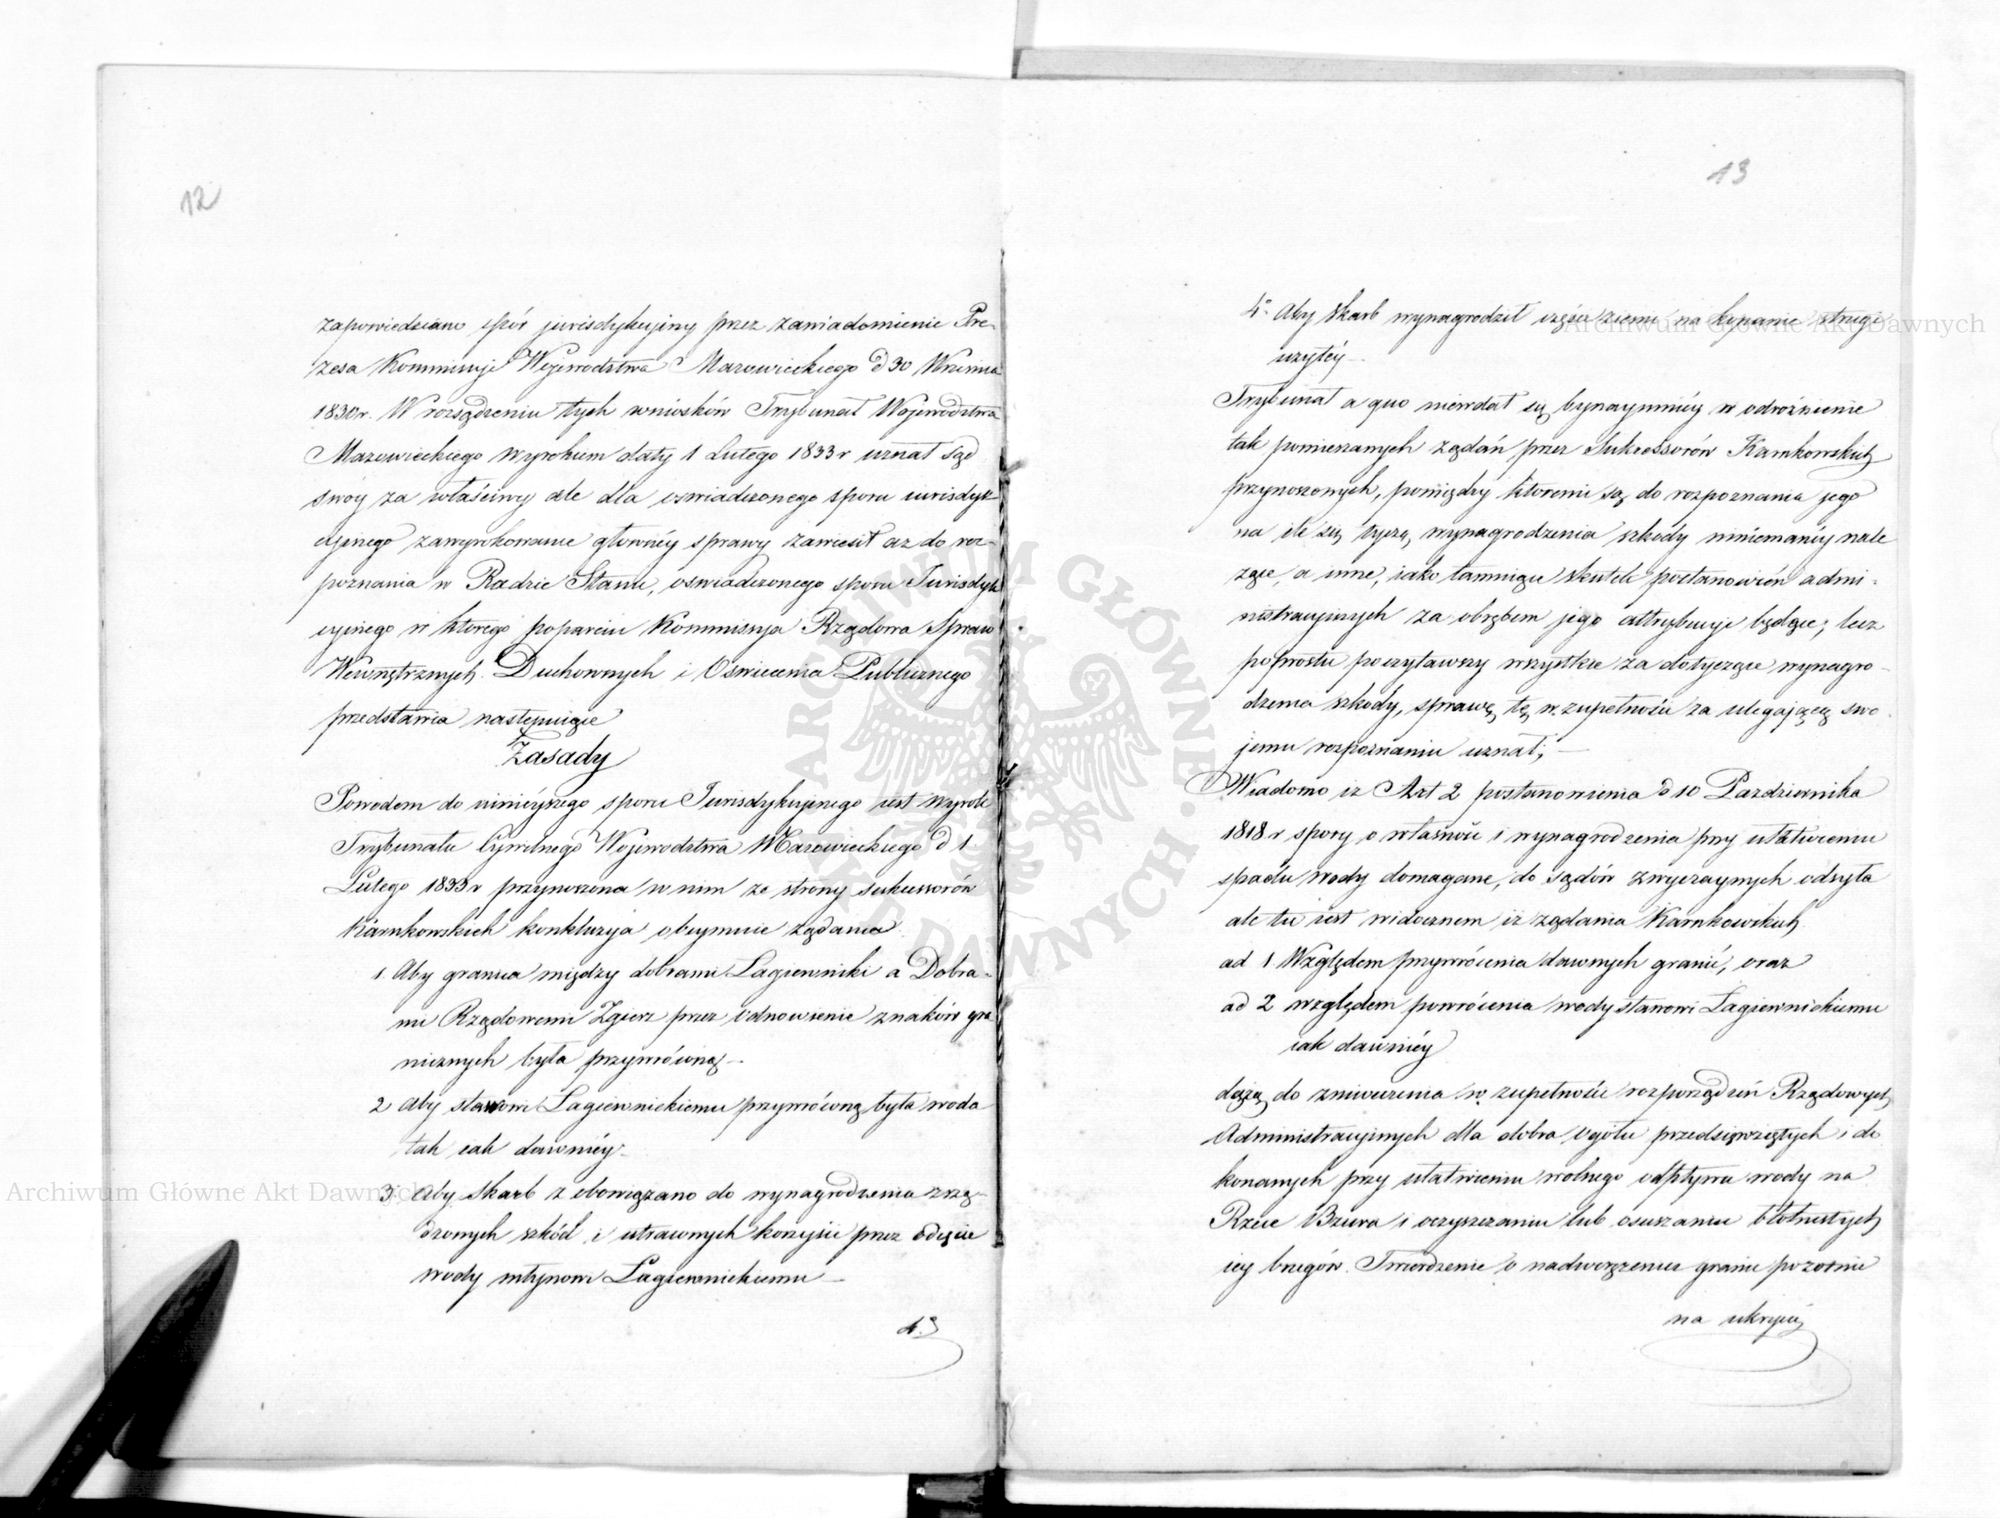 12
zapowiedziano spór jurisdykcyiny przez zawiadomienie Pre-
zesa Kommissyi Województwa Mazowieckiego d 30 Września
1830 r. W rozsądzeniu tych wniosków Trybunał Województwa
Mazowieckiego wyrokiem daty 1 Lutego 1833 r uznał sąd
swóy za właściwy ale dla oświadczonego sporu iurisdyk-
cyinego zawyrokowanie głownéy sprawy zawiesił aż do roz-
poznania w Radzie Stanu, oświadczonego sporu Jurisdyk
cyinego w którego poparciu Kommissya Rządowa Spraw
Wewnętrznych Duchownych i Oświecenia Publicznego
przedstawia następuiące
Zasady
Powodem do ninieyszego sporu Jurisdykcyinego iest wyrok
Trybunału Cywilnego Województwa Mazowieckiego d 1
Lutego 1833 r przynoszona w nim ze strony sukcessorów
Karnkowskich konkluzya obeymuie żądania
1 Aby granica między dobrami Łagiewniki a Dobra-
mi Rządowemi Zgierz przez odnowienie znaków gra
nicznych była przywróconą –
2 Aby stawowi Łagiewnickiemu przywróconą była woda
tak iak dawniéy –
3 Aby skarb zobowiązano do wynagrodzenia zrzą-
dzonych szkód i utraconych korzyści przez odięcie
wody młynowi Łagiewnickiemu –
4.
13
4° Aby Skarb wynagrodził części ziemi na kopanie strugi
użytéy –
Trybunał a quo niewdał się bynaymniéy w odróżnienie
tak pomieszanych żądań przez Sukcessorów Karnkowskich
przynoszonych, pomiędzy któremi są do rozpoznania jego
na ile się tyczą wynagrodzenia szkody mniemanéy nale
żące, a inne, iako tamuiące skutek postanowień admi-
nistracyinych za obrębem jego attrybucyi będące; lecz
poprostu poczytawszy wszystkie za dotyczące wynagro-
dzenia szkody, sprawę tę w zupełności za ulegającą swo
jemu rozpoznaniu uznał; –
Wiadomo iż Art 2 postanowienia d 10 Pazdziernika
1818 r spory o własność i wynagrodzenia przy ułatwieniu
spadu wody domagane, do sądów zwyczaynych odsyła
ale tu iest widocznem iż żądania Karnkowskich
ad 1 Względem przywrócenia dawnych granic, oraz
ad 2 względem powrócenia wody stawowi Łagiewnickiemu
iak dawniéy
dążą do zniweczenia w zupełności rozporządzeń Rządowych
Administracyinych dla dobra ogółu przedsięwziętych i do
konanych przy ułatwieniu wolnego odpływu wody na
Rzece Bzura i oczyszczaniu lub osuszaniu błotnistych
iey brzegów. Twierdzenie o nadwerężeniu granic pozornie
na ukrycie
Archiwum Główne Akt Dawnych
Archiwum Główne Akt Dawnych
ARCHIWUM GŁÓWNE AKT DAWNYCH